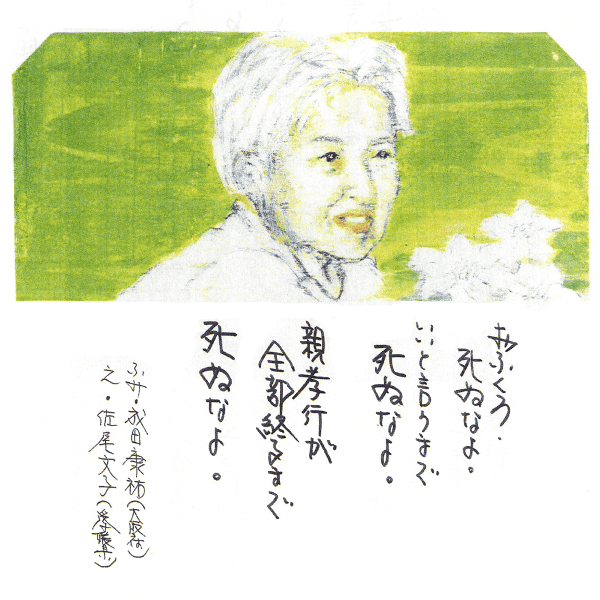 おふくろ、
死ぬなよ。
いいと言うまで
死ぬなよ。
親孝行が
全部終るまで
死ぬなよ。
ふみ・成田康祐(大阪府)
え・佐尾文子(愛媛県)